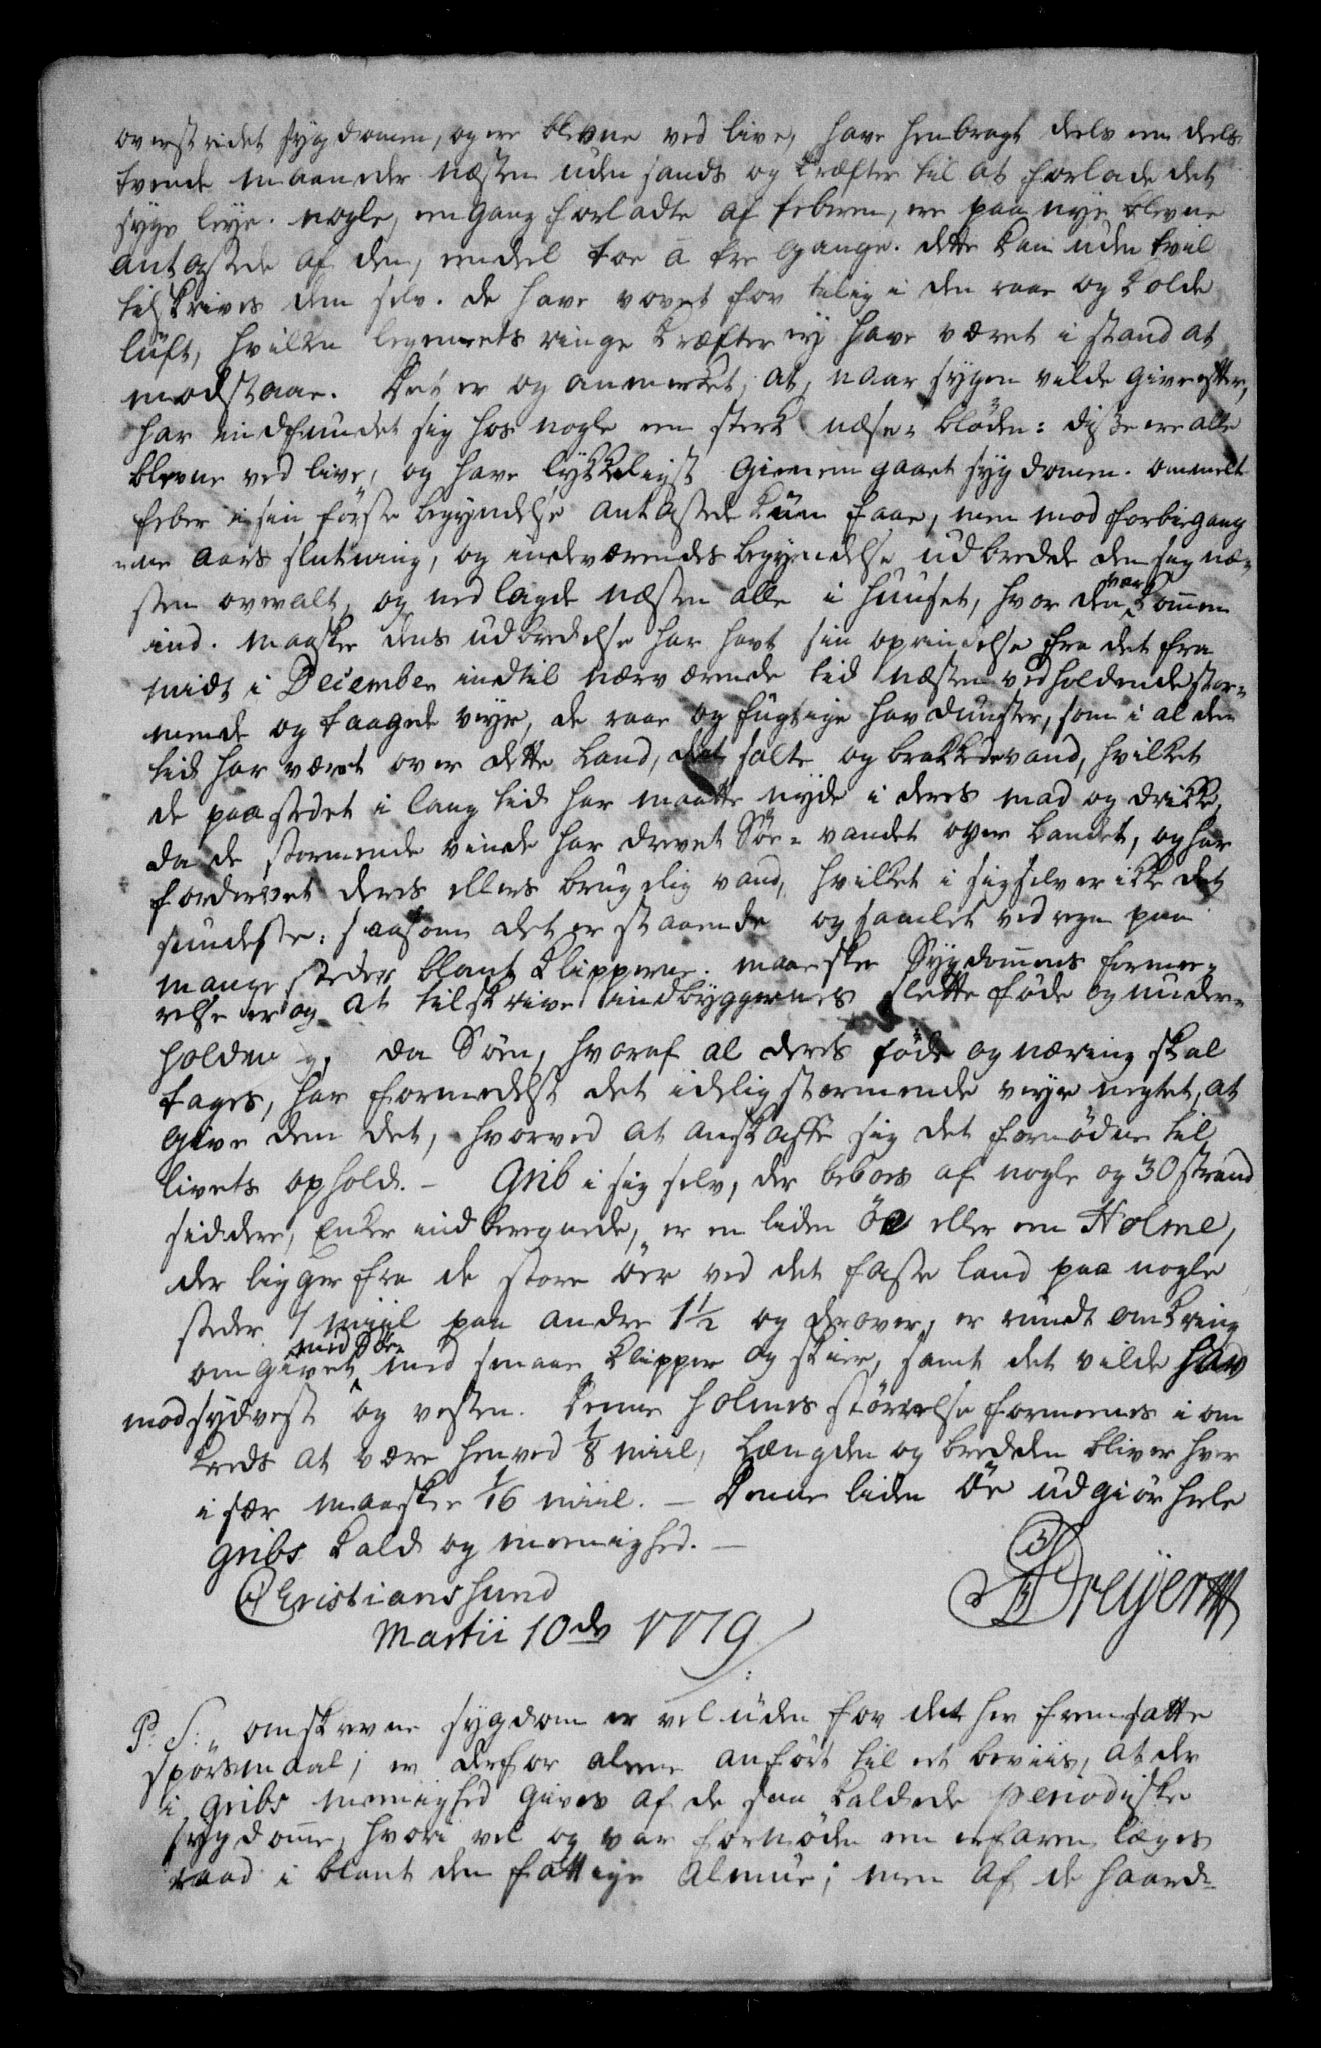 overstridet sygdommen, og ere blevne ved live, have henbragt deels en deels
tvende maaneder næsten uden sands og kræfter til at forlade det
syge leye. nogle, engang forladte af feberen, ere paa nye blevne
antastede af den, endeel toe à tre gange. dette kan uden tvil
tilskrives dem selv. de have vovet for tilig i den raae og kolde
lüft, hvilken legemets ringe kræfter ey have været i stand at
modstaae. Det er og anmerket, at, naar sygen vilde give efter,
har indfundet sig hos nogle en sterk næse=blöden: diße ere alle
blevne ved live, og have lykkeligst giennemgaaet sygdommen. ommelte
feber i sin förste begyndelse antastede kün faae, men mod forbigang
ene aars slutning, og indeværendes begyndelse udbredde den sig næ=
sten overalt, og nedlagde næsten alle i huuset, hvor den var kommen
ind. maaskee dens udbredelse har havt sin oprindelse fra det fra
midt i December indtil nærværende tid næsten vedholdende stor=
mende og taagede veyr, de raae og fugtige havdunster, som i al den
tid har været over dette land, det salte og brakkede vand, hvilket
de paa stedet i lang tid har maatte nyde i deres mad og drikke,
da de stormende vinde har drevet Söe=vandet over landet, og har
fordervet deres ellers brugelig vand, hvilket i sig selv er ikke det
sundeste: saasom det er staaende og samlet ved regn paa
mange steder blant klipperne. maaskee Sygdommens formee=
relse er og at tilskrive indbyggernes slette föde og under=
holdning, da Söen, hvoraf al deres föde og næring skal
tages, har formedelst det idelig stormende veyr negtet, at
give dem det, hvorved at anskaffe sig det fornödne til
livets ophold. – Grib i sig selv, der beboes af nogle og 30 strand
siddere, Enker indberegnede, er en liden öe eller en Holme,
der ligger fra de store öer ved det faste land paa nogle
steder 1 miil paa andre 1½ og derover, er rundt omkring
omgivet med Söe, med smaae klipper og skier, samt det vilde hav
mod sydvest og vesten. Denne holmes störrelse formeenes i om
kreds at være henved 1/8 miil, Længden og bredden bliver hver
i sær maaskee 1/16 miil. – Denne liden öe udgiör heele
Gribs kald og meenighed. –
Christianssund
Martii 10de 1779.
Dreyer
P. S. omskrevne sygdom er vel uden for det her fremsatte
spörsmaal; er derfor alene anfört til et beviis, at der
i Gribs meenighed gives af de saa kaldede periodiske
sygdomme, hvori vel og var fornöden en erfaren læges
raad i blant den fattige almue; men af de haard=